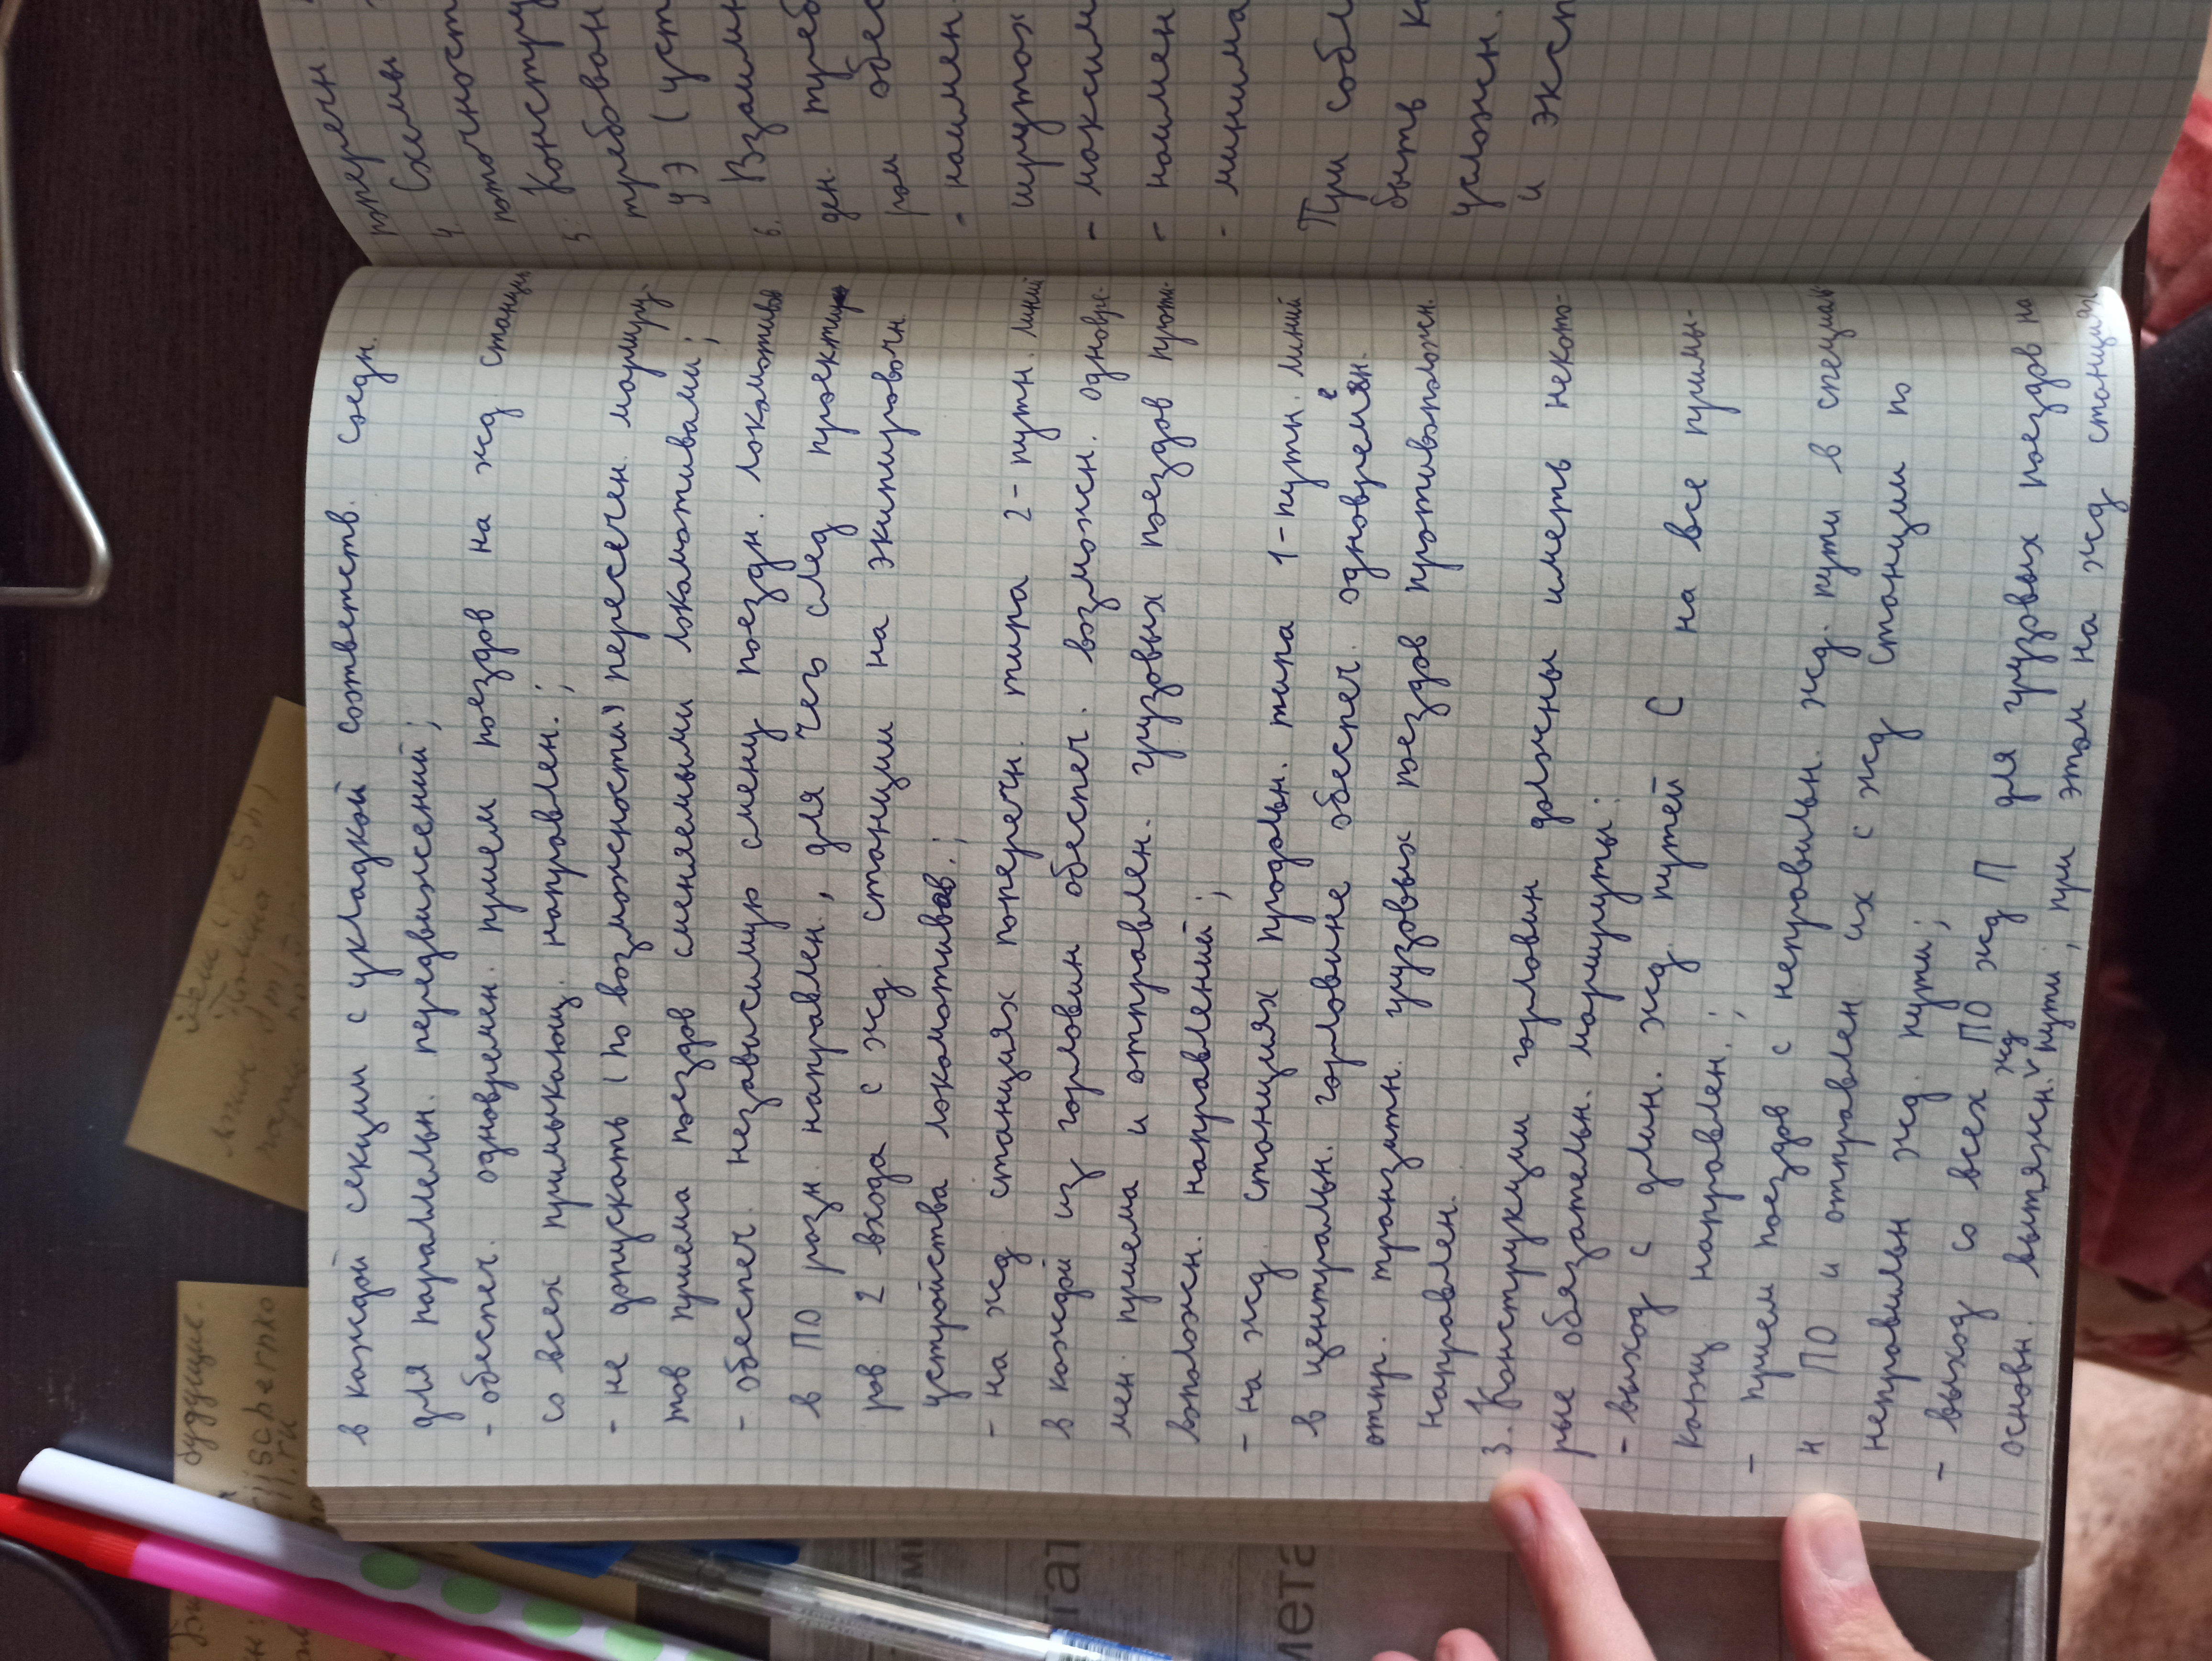 в каждой секции с укладкой соответств. соедн.
для параллельн. передвижений;
- обеспеч. одновремен. прием поездов на жд станции
со всех примыкающ. направлен.;
- не допускать (по возможности) пересечен. маршру-
тов приема поездов сменяемыми локомотивами;
- обеспеч. независимую смену поездн. локомотивов
в ПО разн. направлен., для чего след проектир
ров. 2 входа с жд. станции на экипировочн.
устройства локомотивов.;
- на жд станциях поперечн. типа 2-путн. линий
в каждой из горловин обеспеч. возможн. одновре-
мен. приема и отправлен. грузовых поездов проти-
воположн. направлений;
- на жд. станциях продольн. типа 1-путн. линий
в центральн. горловине обеспеч. одновремен.
отпр. транзитн. грузовых поездов противоположн.
направлен.
3. Конструкции горловин должны иметь некото-
рые обязательн. маршруты:
- выход с длин. жд. путей С на все примы-
кающ. направлен.;
- прием поездов с неправильн. жд. пути в специал
и ПО и отправлен их с жд станции по
неправильн жд. пути;
- выход со всех ПО жд П для грузовых поездов на
основн. вытяжн. жд пути, при этом на жд станциях
поперечн.
4. Схемы
поточност
5. Констру
требован
уэ (уст
6. Взаимн
ден. треб
ром обес
- наимен.
шрутох
- максим
- наимен
- минима
При собл
быть к
условжн.
и эксп
будущие.